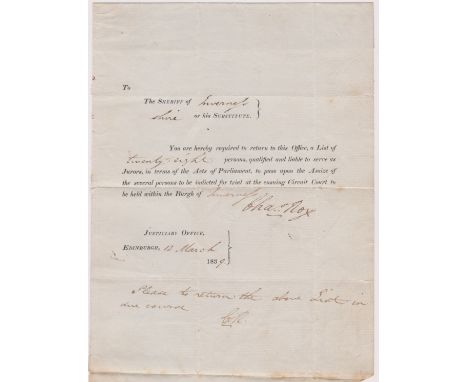 To
The Sheriff of Inverness
shire or his Substitute.
You are hereby required to return to this Office, a List of
twenty eight persons, qualified and liable to serve as
Jurors, in terms of the Acts of Parliament, to pass upon the Assize of
the several persons to be indicted for trial at the ensuing Circuit Court to
be held within the Burgh of Inverness
Chas
Justiciary Office,
Edinburgh, 12 March
1839
Please to return the above List in
due course